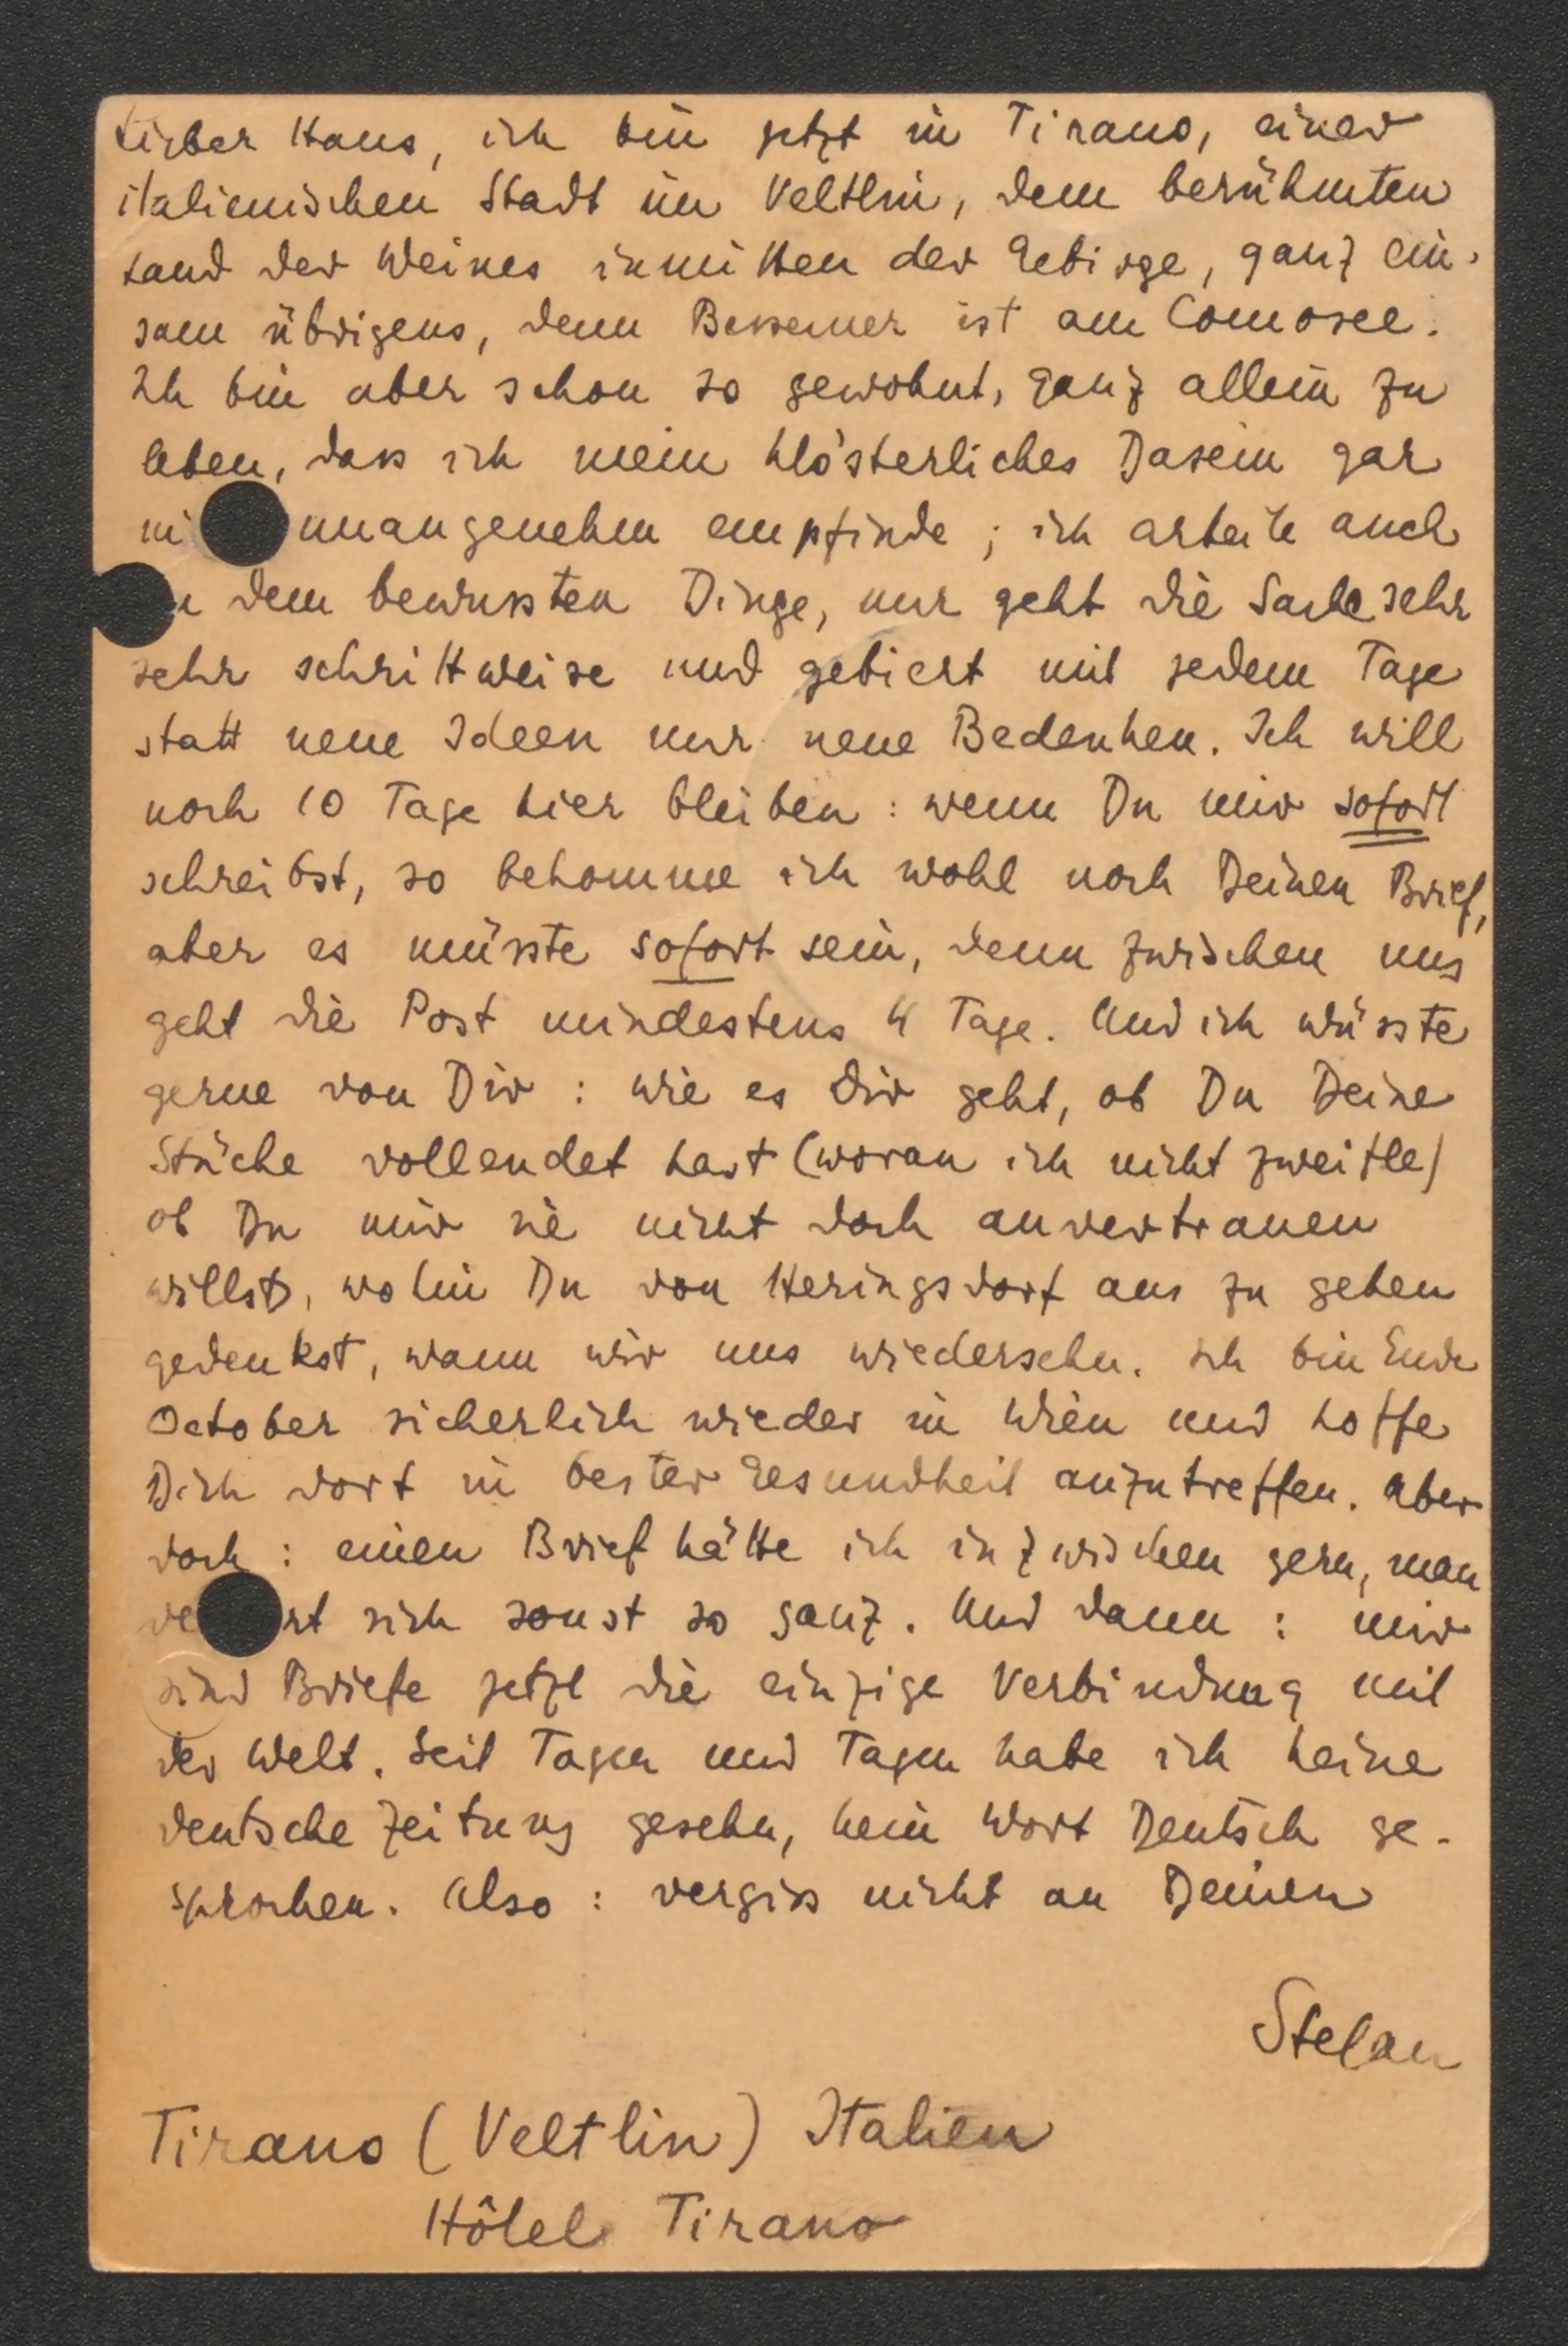 Lieber Hans, ich bin jetzt in Tirano, einer
italienischen Stadt im Veltlin, dem berühmten
Land des Weines inmitten der Gebirge, ganz ein-
sam übrigens, denn Bessemer ist am Comosee.
Ich bin aber schon so gewohnt, ganz allein zu
leben, dass ich mein klösterliches Dasein gar
ni unangenehm empfinde; ich arbeite auch
dem bewussten Dinge, nur geht die Sache sehr
sehr schrittweise und gebiert mit jedem Tage
statt neue Ideen nur neue Bedenken. Ich will
noch 10 Tage hier bleiben: wenn Du mir sofort
schreibst, so bekomme ich wohl noch Deinen Brief,
aber es müsste sofort sein, denn zwischen uns
geht die Post mindestens 4 Tage. Und ich wüsste
gerne von Dir: wie es Dir geht, ob Du Deine
Stücke vollendet hast (woran ich nicht zweifle)
ob Du mir sie nicht doch anvertrauen
willst, wohin Du von Heringsdorf aus zu gehen
gedenkst, wann wir uns wiedersehn. Ich bin Ende
October sicherlich wieder in Wien und hoffe
Dich dort in bester Gesundheit anzutreffen. Aber
doch: einen Brief hätte ich inzwischen gern, man
ve rt sich sonst so ganz. Und dann: mir
sind Briefe jetzt die einzige Verbindung mit
der Welt. Seit Tagen und Tagen habe ich keine
deutsche Zeitung gesehn, kein Wort Deutsch ge-
sprochen. Also: vergiss nicht an Deinen
Stefan
Tirano (Veltlin) Italien
Hôtel Tirano